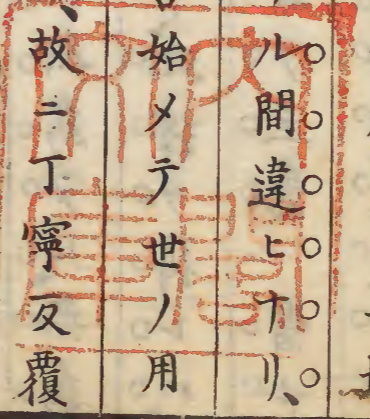 ル間違ヒナリ、
始メテ世ノ用
、故ニ丁寧反覆